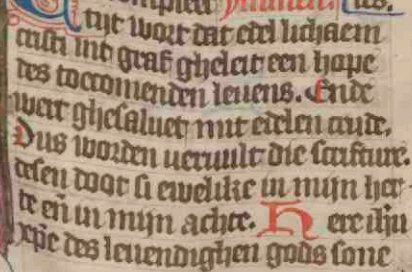 tijt wort dat edel lichaem
cristi int graf gheleit een hope
des toecomenden leuens. Ende
wert ghesaluet mit edelen crude.
Dus worden veruult die scrifture.
desen doot si ewelike in mijn her
te eñ in mijn achte. Here ihu
xpe des leuendighen gods sone